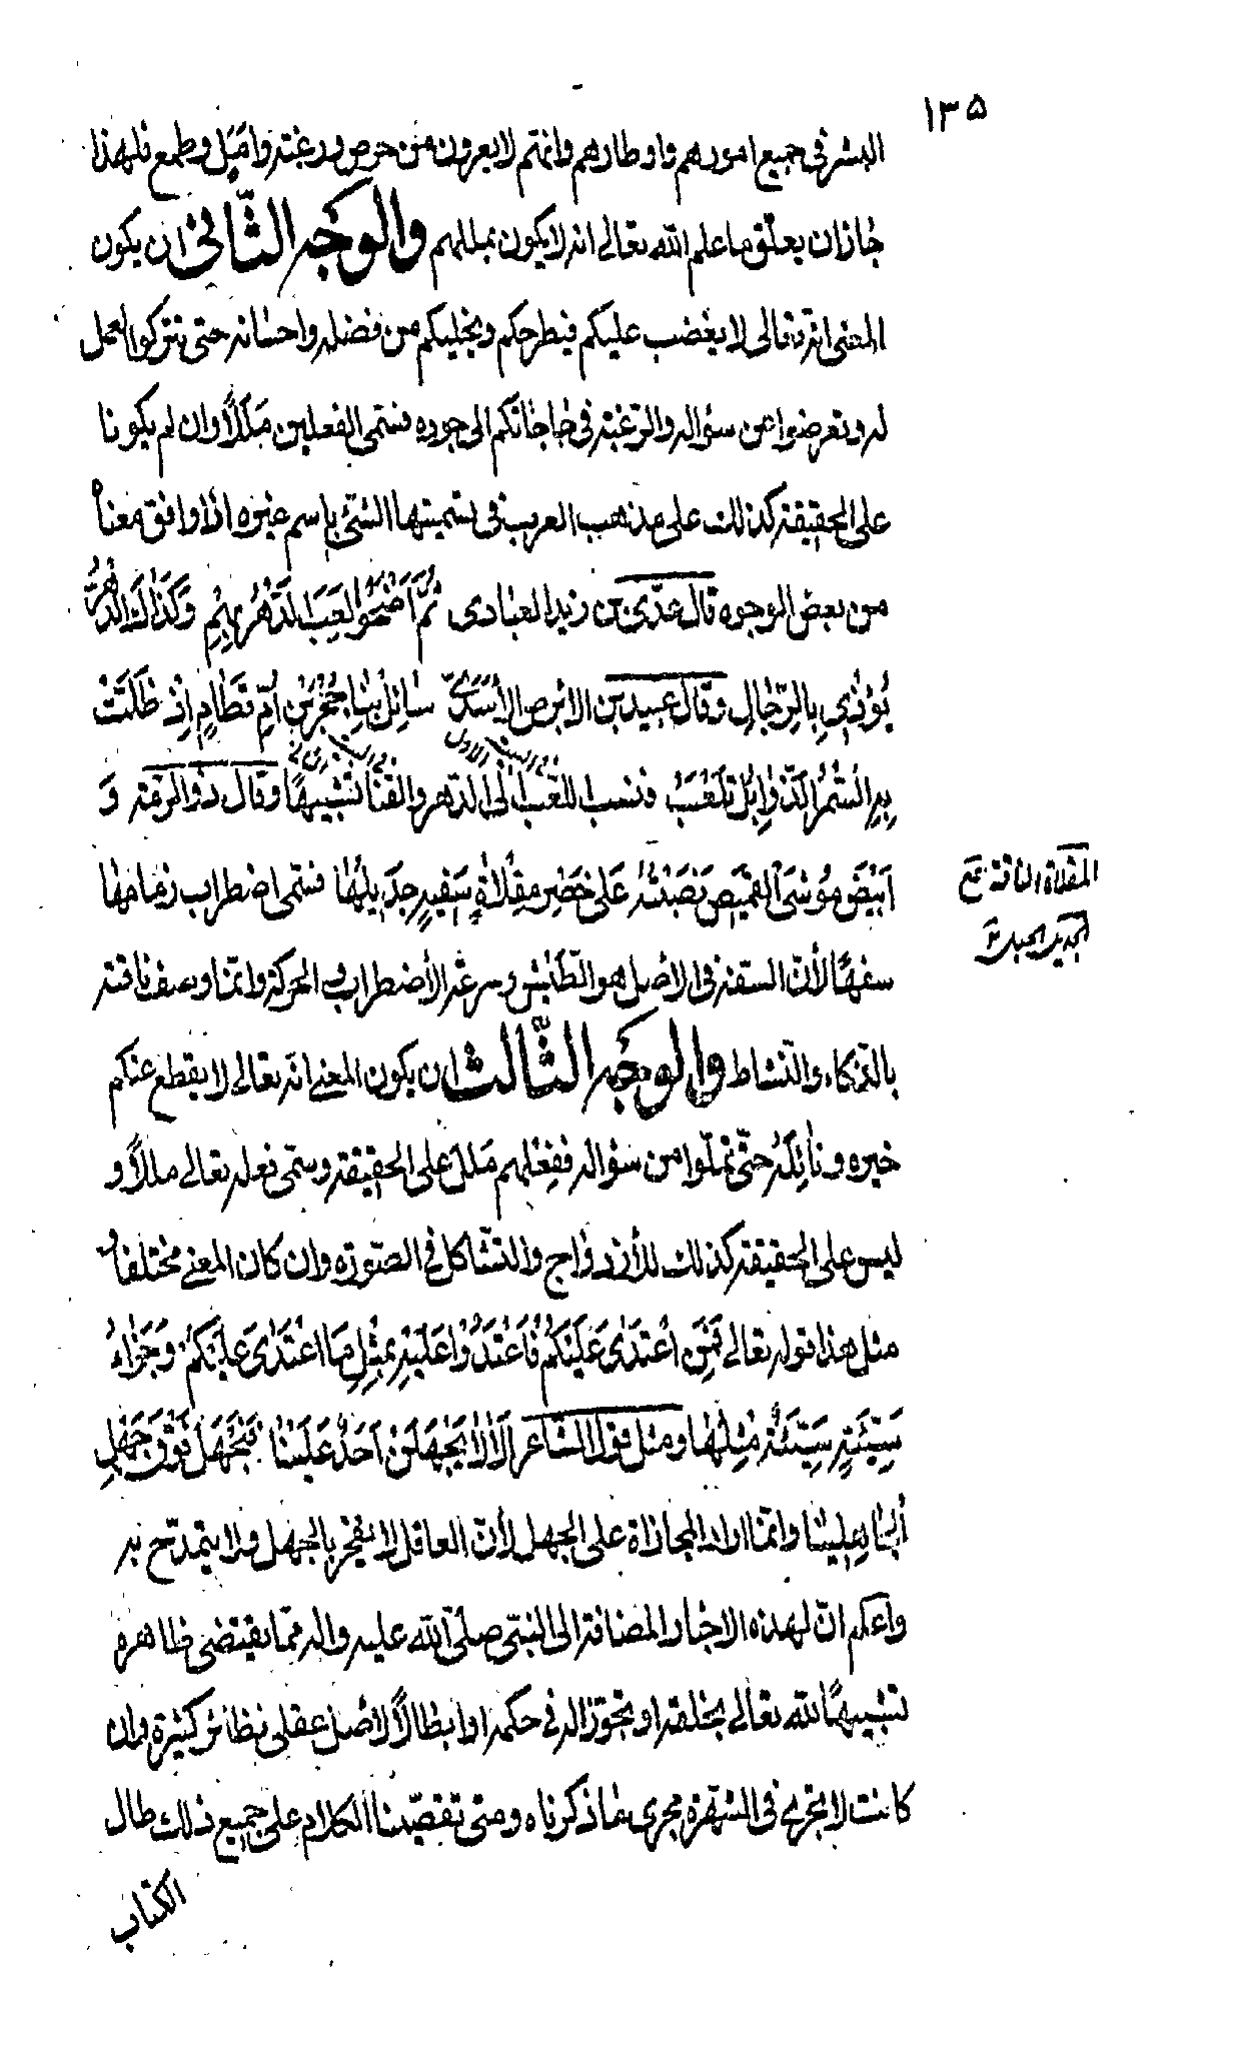 ١٣٥
البشر في جميع امورهم واوطارهم وانهم لا يعرون من حرص ورغبته وامل وطمع فلهذا
جاز ان يعلق ما علم الله تعالى انه لا يكون بمللهم والوجه الثاني ان يكون
المعنى انه تعالى لا يغضب عليكم فيطرحكم ويخليكم من فضله واحسانه حتى تتركوا العمل
له وتعرضوا عن سؤاله والرغبة في حاجاتكم الى جوده فسمى الفعلين مَلَلًا وان لم يكونا
على الحقيقة كذلك على مذهب العرب في تسميتها الشئ باسم غيره اذا وافق معناه
من بعض الوجوه قال عدي بن زيد العبادى ثُمَّ اَضْحَوْا لَعِبَ الدَّهْرُ بِهِمْ وَكَذَاكَ الدَّهْرُ
يُؤذي بِالرِّجٰالِ وقال عبيد بن الابرص الأسَدِيّ سٰائِلْ بِنٰا حُجْرَ بْنَ اُمِّ قَطٰامِ اِذْ ظَلَّتْ
في البيت الاول في البيت الثاني
بِهِ السُّمْرُ الذَّوٰابِلُ تَلْعَبُ فنسب اللعب الى الدهر والقنا تشبيهًا وقال ذو الرمة وَ
اَبْيَضَ مُوْشَى القَمِيْصِ نَصَبْتُهُ عَلىٰ خَصْرِ مِقْلٰاةٍ سَفِيهٍ جَدِيلُهٰا فسمى اضطراب زمامها
المقلاة الناقة
الجديل الحبل
سفهًا لأنّ السفه في الاصل هو الطيش وسرعة الأضطراب والحركة وانما وصف ناقته
بالذكاء والنشاط والوجه الثالث ان يكون المعنى انه تعالى لا يقطع عنكم
خيره ونائِلَهُ حتّى تملّوا من سؤاله ففعلهم مَلَل على الحقيقة وسمى فعله تعالى مللًا و
ليس على الحقيقة كذلك للأزدواج والتشاكل في الصّورة وان كان المعنى مختلفًا و
مثل هذا قوله تعالى فَمَنِ اعْتَدٰى عَلَيْكُمْ فَاعْتَدُوْا عَلَيْهِ بِمِثْلِ مَا اعْتَدٰى عَلَيْكُمْ وَجَزٰاءُ
سَيِّئَةٍ سَيِّئَةٌ مِثْلُهٰا ومثل قول الشاعر اَلٰا لٰا يَجْهَلَنْ اَحَدٌ عَلَيْنٰا فَنَجْهَلَ فَوْقَ جَهْلِ
الجٰاهِلِينٰا وانما اراد المجازاة على الجهل لأنّ العاقل لا يفخر بالجهل ولا يتمدّح به
واعلم انّ لهذه الاخبار المضافة الى النبي صلى الله عليه واله ممّا يقتضى ظاهره
تشبيهًا لله تعالى بخلقه او تجويرًا له في حكمه او ابطالًا لاصل عقلى نظائر كثيرة وان
كانت لا تجرى في الشهرة مجرى ما ذكرناه ومتى تقصّينا الكلام على جميع ذلك طال
الكتاب